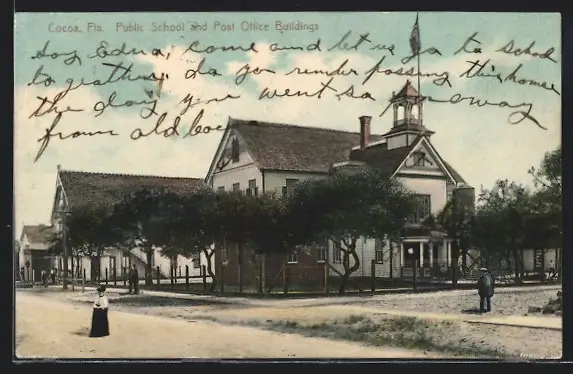 Cocoa, Fla. Public School and Post Office Buildings
say Edna, come and let us go to school
to geather. do you remder passing this house
the day you went so away
from old